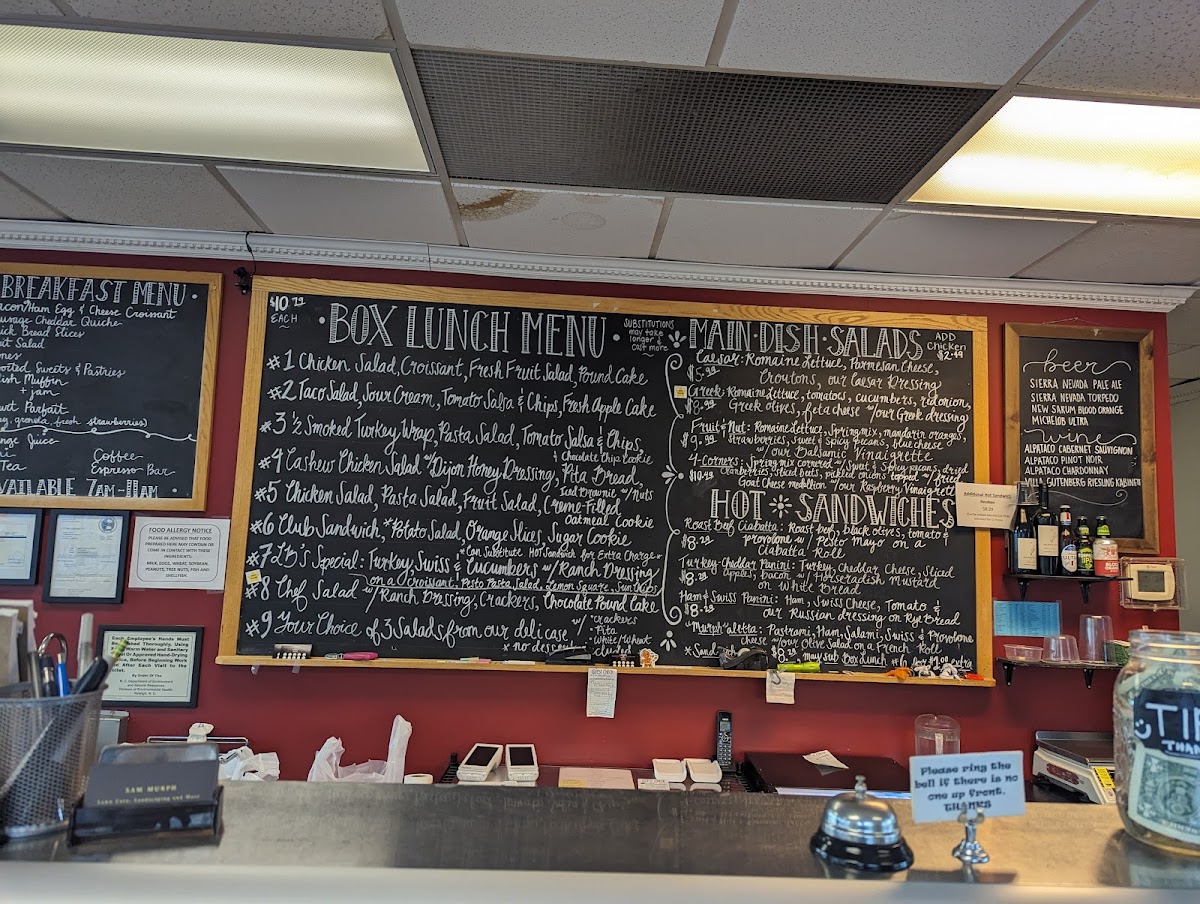 BREAKFAST MENU
Egg & Cheese Croissant
Cheddar Quiche
Bread Slices
Salad
Sweets & Pastries
Muffin
+ jam
Parfait
granola, fresh strawberries)
Juice
Tea
Coffee
Espresso Bar
AVAILABLE 7AM-11AM
$10.79
EACH
BOX LUNCH MENU
SUBSTITUTIONS
may take
longer &
cost more
#1 Chicken Salad, Croissant, Fresh Fruit Salad, Pound Cake
#2 Taco Salad, Sour Cream, Tomato Salsa & Chips, Fresh Apple Cake
#3 ½ Smoked Turkey Wrap, Pasta Salad, Tomato Salsa & Chips,
& Chocolate Chip Cookie
#4 Cashew Chicken Salad w/ Dijon Honey Dressing, Pita Bread,
Iced Brownie w/ Nuts
#5 Chicken Salad, Pasta Salad, Fruit Salad, Creme-Filled
Oatmeal Cookie
#6 Club Sandwich, *Potato Salad, Orange Slices, Sugar Cookie
*Can Substitute Hot Sandwich for Extra Charge*
#7 Special: Turkey, Swiss & Cucumbers w/ Ranch Dressing
on a croissant, Pesto Pasta Salad, Lemon Square, Sun Chips
#8 Chef Salad w/ Ranch Dressing, Crackers, Chocolate Pound Cake
#9 Your Choice of 3 Salads from our deli case w/
* no dessert included
· Crackers
· Pita
· White/Wheat
MAIN·DISH·SALADS
ADD
Chicken
$2.49
Caesar: Romaine Lettuce, Parmesan Cheese,
Croutons, our Caesar Dressing
Greek: Romaine Lettuce, tomatoes, cucumbers, red onion,
$8.99
Greek olives, feta cheese w/our Greek dressing
Fruit & Nut: Romaine Lettuce, Spring mix, mandarin oranges,
$9.99
strawberries, Sweet & Spicy pecans, blue cheese
w/ our Balsamic Vinaigrette
4-Corners: Spring mix cornered w/ Sweet & Spicy pecans, dried
cranberries, sliced beets, pickled onions topped w/ fried
Goat Cheese medallion w/our Raspberry Vinaigrette
HOT SANDWICHES
Roast Beef Ciabatta: Roast beef, black olives, tomato &
$8.29
provolone w/ Pesto Mayo on a
Ciabatta Roll
Turkey Cheddar Panini: Turkey, Cheddar Cheese, Sliced
$8.29
apples, bacon w/ Horseradish Mustard
on White Bread
Ham & Swiss Panini: Ham, Swiss Cheese, Tomato &
$8.29
our Russian dressing on Rye Bread
"Murph"aletta: Pastrami, Ham, Salami, Swiss & Provolone
Cheese w/our Olive Salad on a French Roll
may sub Box Lunch #6 for $1.00 extra
beer
SIERRA NEVADA PALE ALE
SIERRA NEVADA TORPEDO
NEW SARUM BLOOD ORANGE
MICHELOB ULTRA
wine
ALPATACO CABERNET SAUVIGNON
ALPATACO PINOT NOIR
ALPATACO CHARDONNAY
VILLA GUTENBERG RIESLING KABINETT
FOOD ALLERGY NOTICE
PLEASE BE ADVISED THAT FOOD
PREPARED HERE MAY CONTAIN OR
COME IN CONTACT WITH THESE
INGREDIENTS:
MILK, EGGS, WHEAT, SOYBEAN,
PEANUTS, TREE NUTS, FISH AND
SHELLFISH.
Each Employee's Hands Must
Be Washed Thoroughly, Using
Warm Water and Sanitary
Or Approved Hand-Drying
Device, Before Beginning Work
And After Each Visit to the
Toilet.
By Order Of The
N. C. Department of Environment
and Natural Resources
Division of Environmental Health
Raleigh, N. C.
SAM MURPH
Lawn Care, Landscaping and More
Please ring the
bell if there is no
one up front.
THANKS
TIP